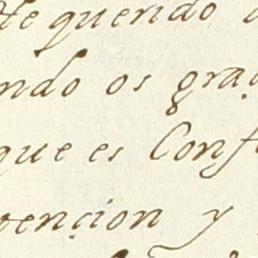 te querido
ndo os gra
que es Conf
tençion y